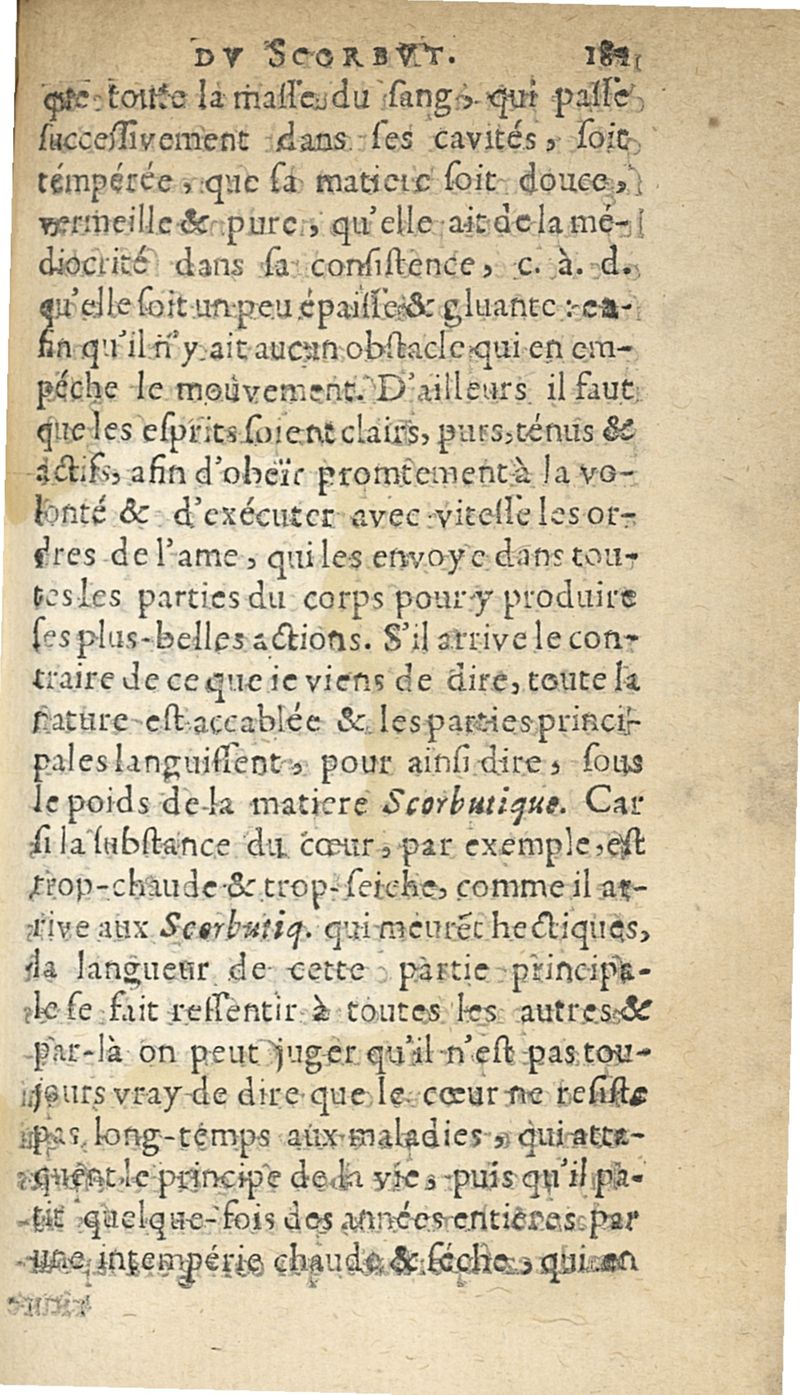 DV SCORBVT. 181
que toute la masse du sang, qui passe
successivement dans ses cavités, soit
témpérée, que sa matiere soit douce,
vermeille & pure, qu'elle ait de la mé-
diocrité dans sa consistence, c. à. d.
qu'elle soit un peu épaisse & gluante : ea-
fin qu'il n'y ait aucun obstacle qui en em-
péche le mouvement. D'ailleurs il faut
que les esprits soient clairs, purs, ténus &
actifs, afin d'obeïr promtement à la vo-
lonté & d'exécuter avec vitesse les or-
dres de l'ame, qui les envoye dans tou-
tes les parties du corps pour y produire
ses plus-belles actions. S'il arrive le con-
traire de ce que ie viens de dire, toute la
nature est accablée & les parties princi-
pales languissent, pour ainsi dire, sous
le poids de la matiere Scorbutique. Car
si la substance du cœur, par exemple, est
trop-chaude & trop-seiche, comme il ar-
rive aux Scorbutiq. qui meurẽt hectiques,
la langueur de cette partie principa-
le se fait ressentir à toutes les autres &
par-là on peut juger qu'il n'est pas tou-
jours vray de dire que le cœur ne resiste
pas long-temps aux maladies, qui atta-
quent le principe de la vie, puis qu'il pa-
tit quelque-fois des années entiéres par
une intempérie chaude & séche, qui en